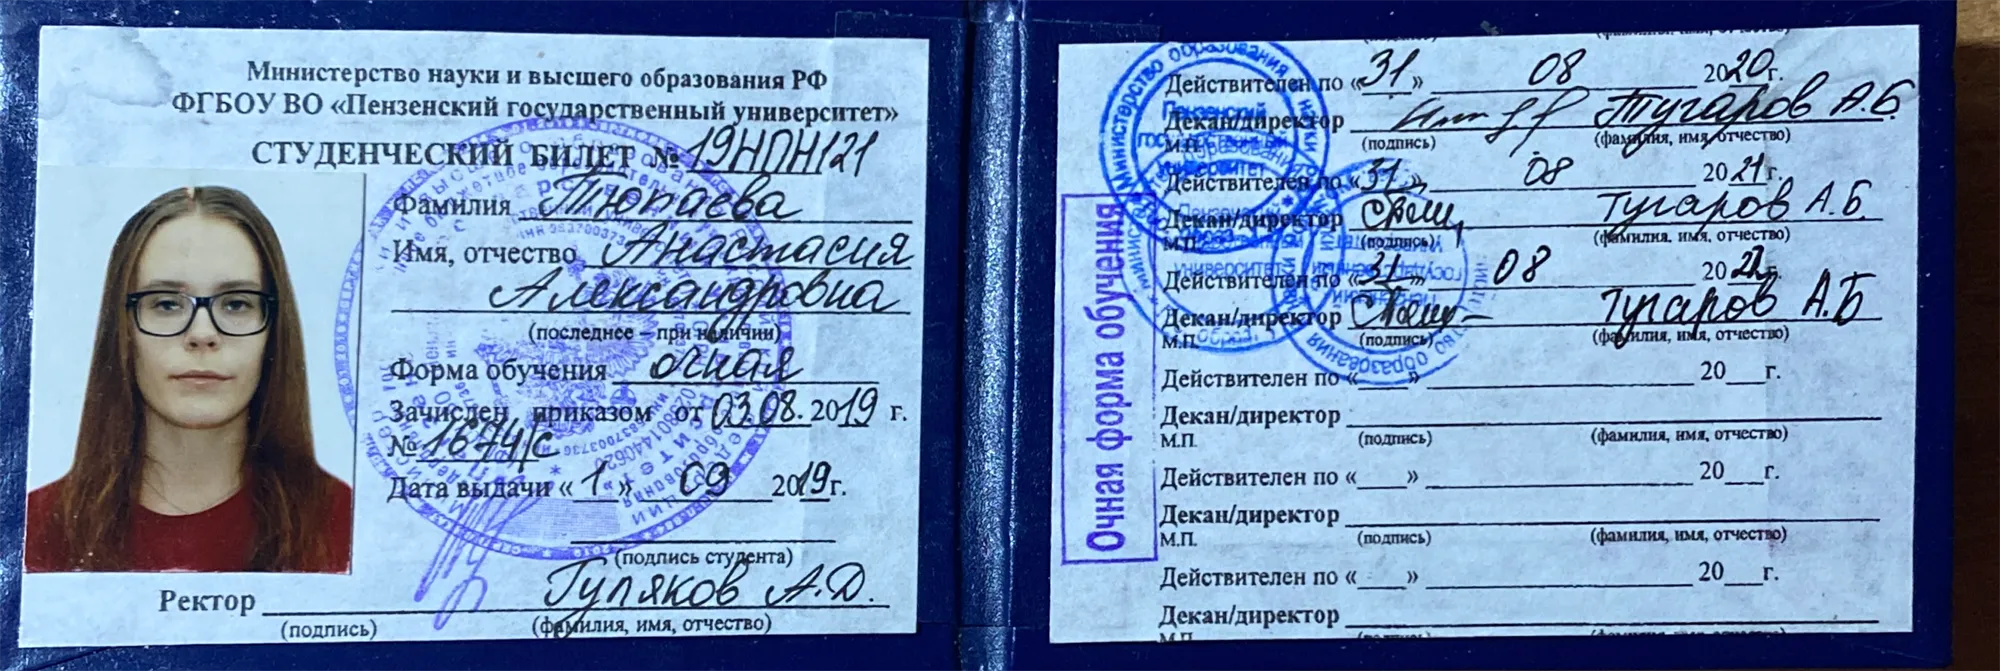 Министерство науки и высшего образования РФ
ФГБОУ ВО «Пензенский государственный университет»
СТУДЕНЧЕСКИЙ БИЛЕТ № 19НПН121
Фамилия Тюпаева
Имя, отчество Анастасия
Александровна
(последнее – при наличии)
Форма обучения очная
Зачислен приказом от 03.08.2019 г.
№ 1674/с
Дата выдачи «1» 09 2019г.
(подпись студента)
Ректор Гуляков А.Д.
(подпись) (фамилия, имя, отчество)
Очная форма обучения
Действителен по «31» 08 2020г.
Декан/директор Тугаров А.Б.
М.П. (подпись) (фамилия, имя, отчество)
Действителен по «31» 08 2021г.
Декан/директор Тугаров А.Б.
М.П. (подпись) (фамилия, имя, отчество)
Действителен по «31» 08 2022г.
Декан/директор Тугаров А.Б
М.П. (подпись) (фамилия, имя, отчество)
Действителен по «____» 20___г.
Декан/директор
М.П. (подпись) (фамилия, имя, отчество)
Действителен по «____» 20___г.
Декан/директор
М.П. (подпись) (фамилия, имя, отчество)
Действителен по «____» 20___г.
Декан/директор